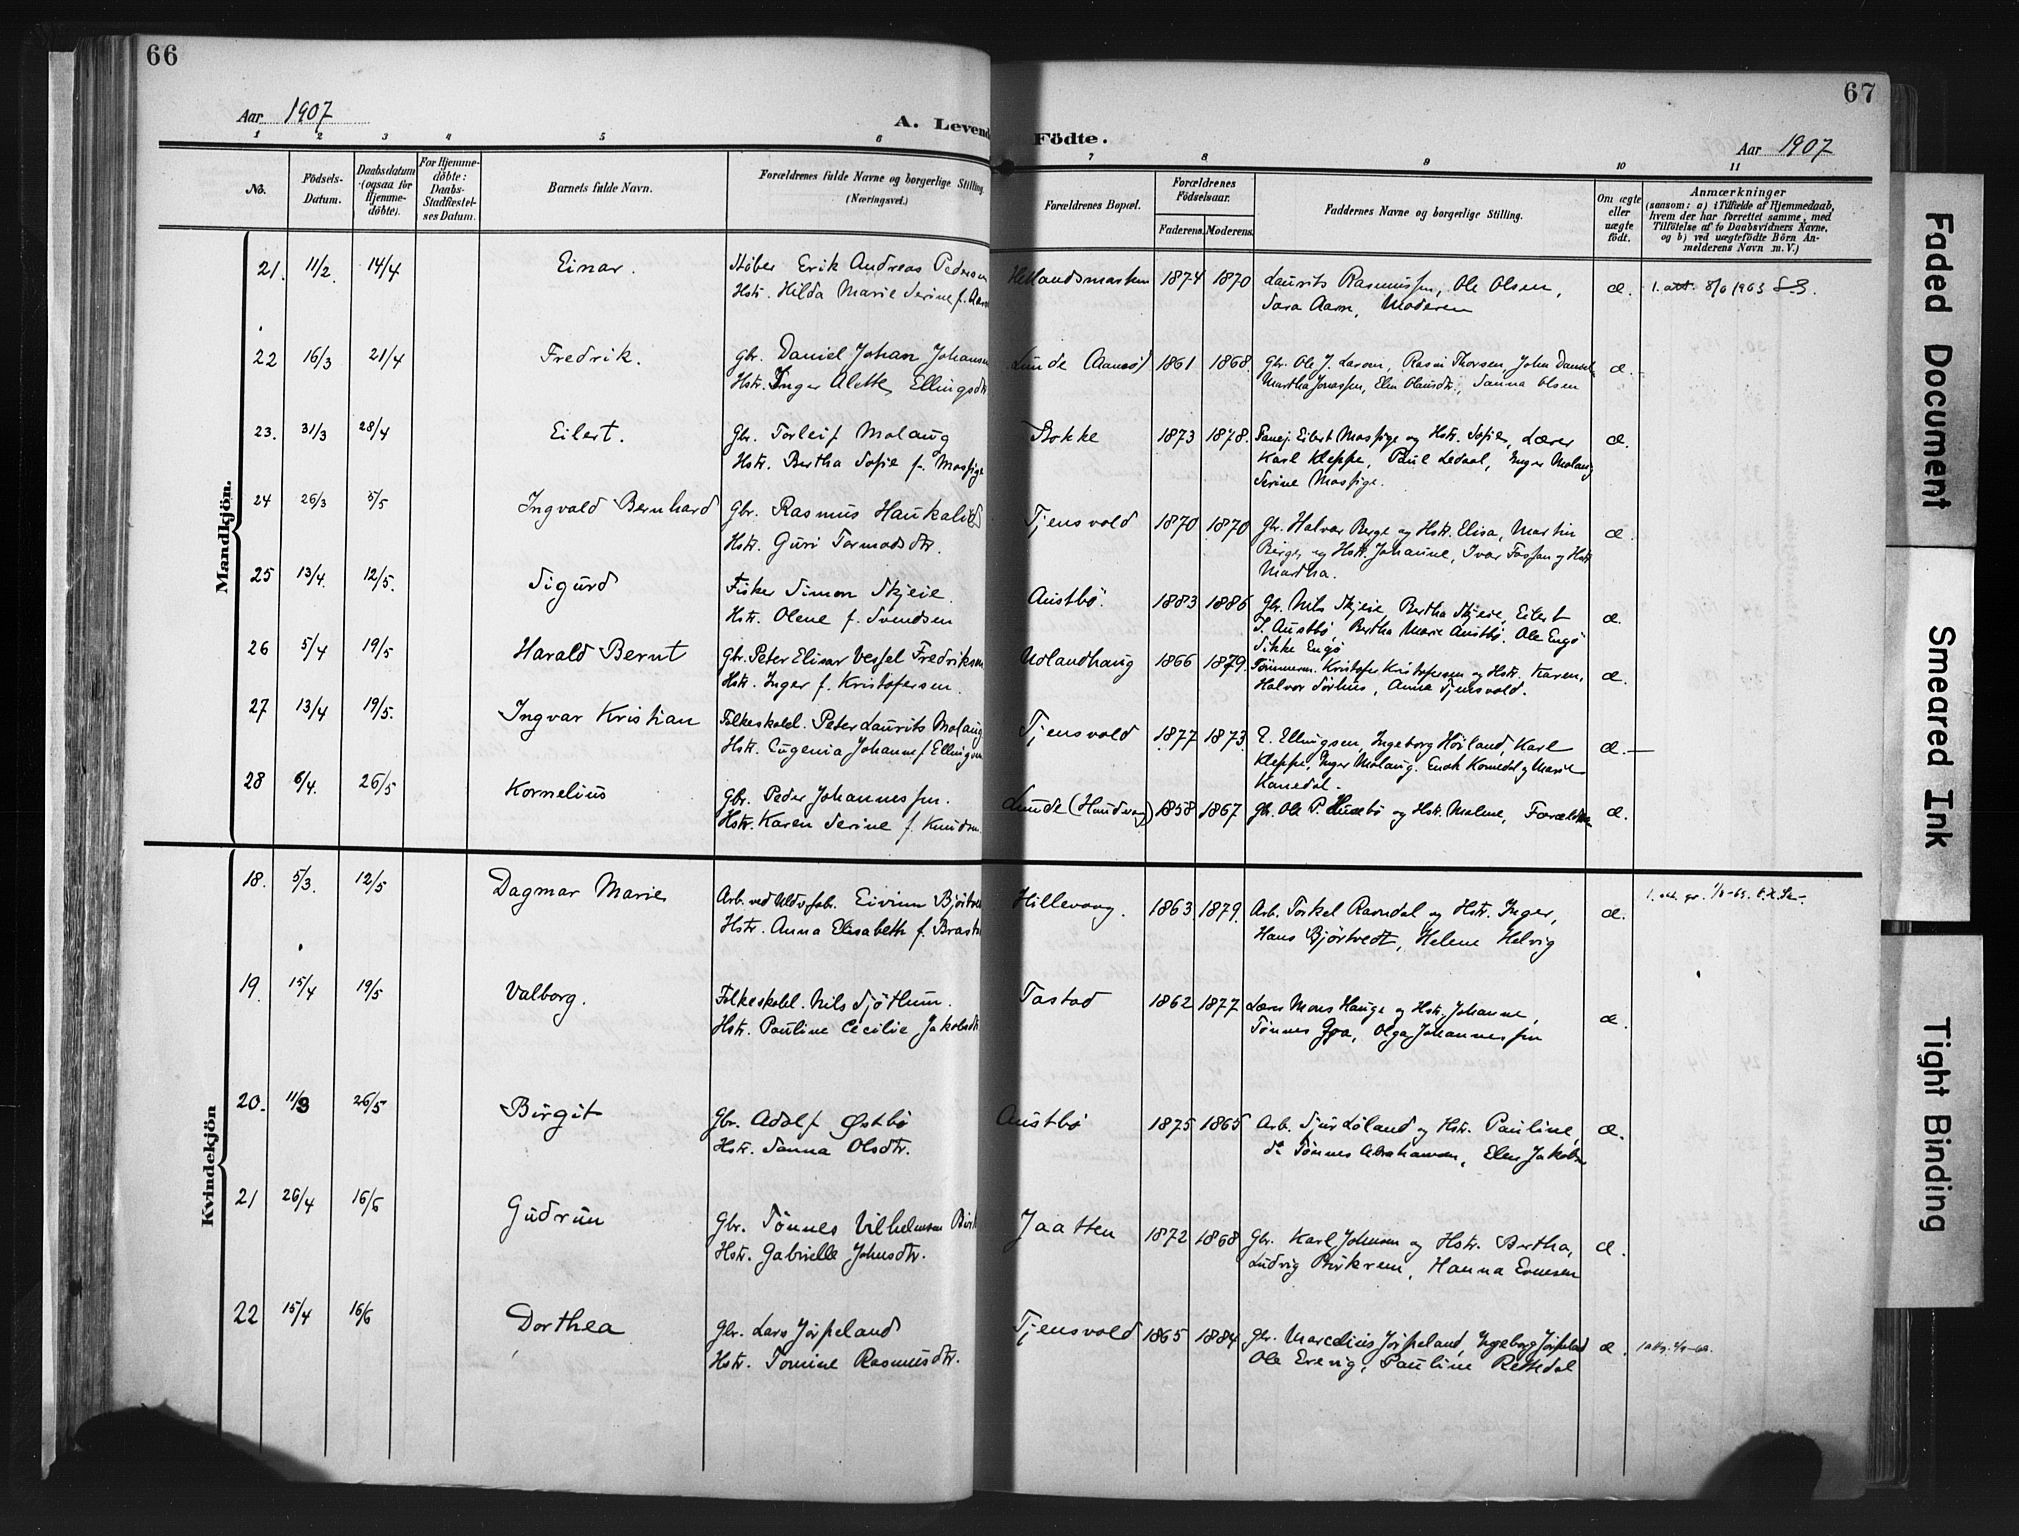 66
67
Aar 1907
A. Levende
Födte.
Aar 1907
1 2 3 4 5 6 7 8 9 10 11
No.
Födsels-Datum.
Daabsdatum (ogsaa for Hjemme-döbte).
For Hjemme-döbte: Daabs-Stadfæstel-ses Datum.
Barnets fulde Navn.
Forældrenes fulde Navne og borgerlige Stilling. (Næringsvei.)
Forældrenes Bopæl.
Forældrenes Födselsaar.
Faderens. Moderens.
Faddernes Navne og borgerlige Stilling.
Om ægte eller uægte födt.
Anmærkninger
(saasom: a) i Tilfælde af Hjemmedaab, hvem der har forrettet samme, med Tilföielse af to Daabsvidners Navne, og b) ved uægtefödte Börn An-melderens Navn m. V.)
Mandkjön.
21. 11/2. 14/4 Einar. Støber Erik Andreas Pedersen Hetlandsmarken 1874 1870 Laurits Rasmussen, Ole Olsen, æ. 1. att. 8/6 1963
Hstr. Hilda Marie Serine f. Sara Aarn, Moderen
22 16/3 21/4 Fredrik. Gbr. Daniel Johan Johansen Lunde 1861 1868. Gbr. Ole J. Larsen, Rasm Thorsen, John Daniel æ.
Hstr. Inger Alette Ellingsdtr Martha Jonassen, Elen Olausdtr, Sanna Olsen
23. 31/3 28/4 Eilert. Gbr. Torleif Molaug Stokke 1873 1878. Eilert Mossige og Hstr. Sofie, Lærer æ
Hstr. Bertha Sofie f. Mossige Karl Kleppe, Paul Ledaal, Inger Molaug
Serine Mossige.
24 26/3 5/5 Ingvald Bernhard Gbr. Rasmus Haukalid Tjensvold 1870 1870 Gbr. Halvor Berge og Hstr. Elisa, Martin æ.
Hstr. Guri Tormodsdtr. Berge og Hstr. Johanne, Ivar Fossan og Hstr
Martha.
25 13/4. 12/5. Sigurd Fisker Simon Skjeie. Austbö. 1883 1886 Gbr. Nils Skjeie, Bertha Skjeie, Eilert æ.
Hstr. Olene f. Svendsen T. Austbø, Bertha Marie Austbø. Ole Engø
Sikke Engø
26 5/4 19/5 Harald Bernt Gbr. Peter Elinar Vessel Fredriksen Ulandhaug 1866 1879. Tömmerm. Kristofer Kristofersen og Hstr. Karen, æ.
Hstr. Inger f. Kristofersen. Halvor Sørhus, Anna Tjensvold.
27 13/4 19/5. Ingvar Kristian Folkeskolel. Peter Laurits Molaug Tjensvold 1877 1873 E. Ellingsen, Ingeborg Høiland, Karl æ.—
Hstr. Eugenia Johanne f Ellingsen Kleppe, Inger Molaug. Enok Konedal og Marie
Konedal.
28 6/4. 26/5 Kornelius Gbr. Peder Johannessen. Lunde (Hundvaag) 1858 1867 Gbr. Ole P. Husebø og Hstr. Malene, Forældrene æ.
Hstr. Karen Serine f. Knudsen
Kvindekjön
18. 5/3. 12/5 Dagmar Marie Arb. ved Uldvfab. Eivinn Björtvedt Hillevaag. 1863 1879. Arb. Torkel Ravndal og Hstr. Inger, æ.
Hstr. Anna Elisabeth f. Hans Bjørtvedt, Helene Helvig
19. 15/4 19/5 Valborg. Folkeskolel. Nils Sjøthun. Tastad 1862 1877 Lærer Mons Hauge og Hstr. Johanne, æ.
Hstr. Pauline Cecilie Jakobsdtr Tønnes Goa, Olga Johannessen
20. 11/3 26/5 Birgit Gbr. Adolf Østbø Austbø 1875 1865 Arb. Sjur Løland og Hstr. Pauline, æ.
Hstr. Sanna Olsdtr. do Tønnes Abrahamsen, Elen Jakobsen
21 26/4 16/6 Gudrun Gbr. Tønnes Vilhelmsen Jaatten 1872 1868 Gbr. Karl Johnsen og Hstr. Bertha, æ.
Hstr. Gabrielle Johnsdtr. Ludvig Birkrem, Hanna Evensen
22 15/4 16/6 Dorthea Gbr. Lars Jørpeland Tjensvold 1865 1884 Gbr. Marcelius Jørpeland, Ingeborg Jørpeland æ.
Hstr. Tomine Rasmusdtr. Ole Erevig, Pauline Rettedal
Faded Document
Smeared Ink
Tight Binding